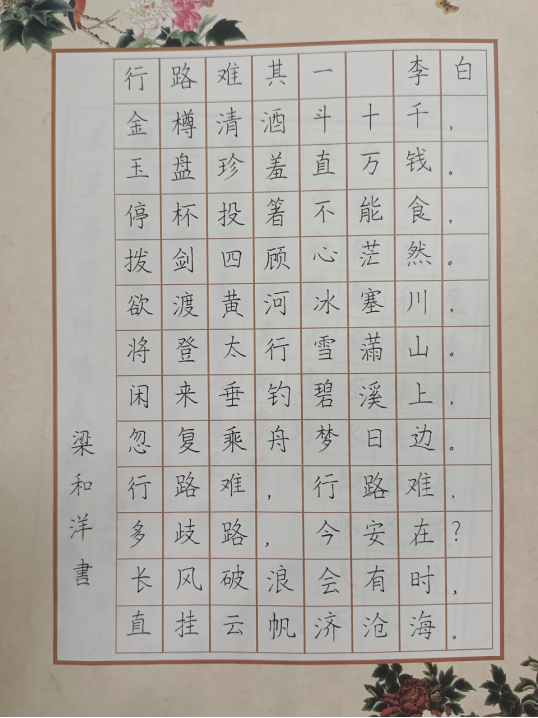 行路难其一 李白
金樽清酒斗十千，
玉盘珍羞直万钱。
停杯投箸不能食，
拨剑四顾心茫然。
欲渡黄河冰塞川，
将登太行雪满山。
闲来垂钓碧溪上，
忽复乘舟梦日边。
行路难，行路难，
多歧路，今安在？
长风破浪会有时，
直挂云帆济沧海。
梁和洋書